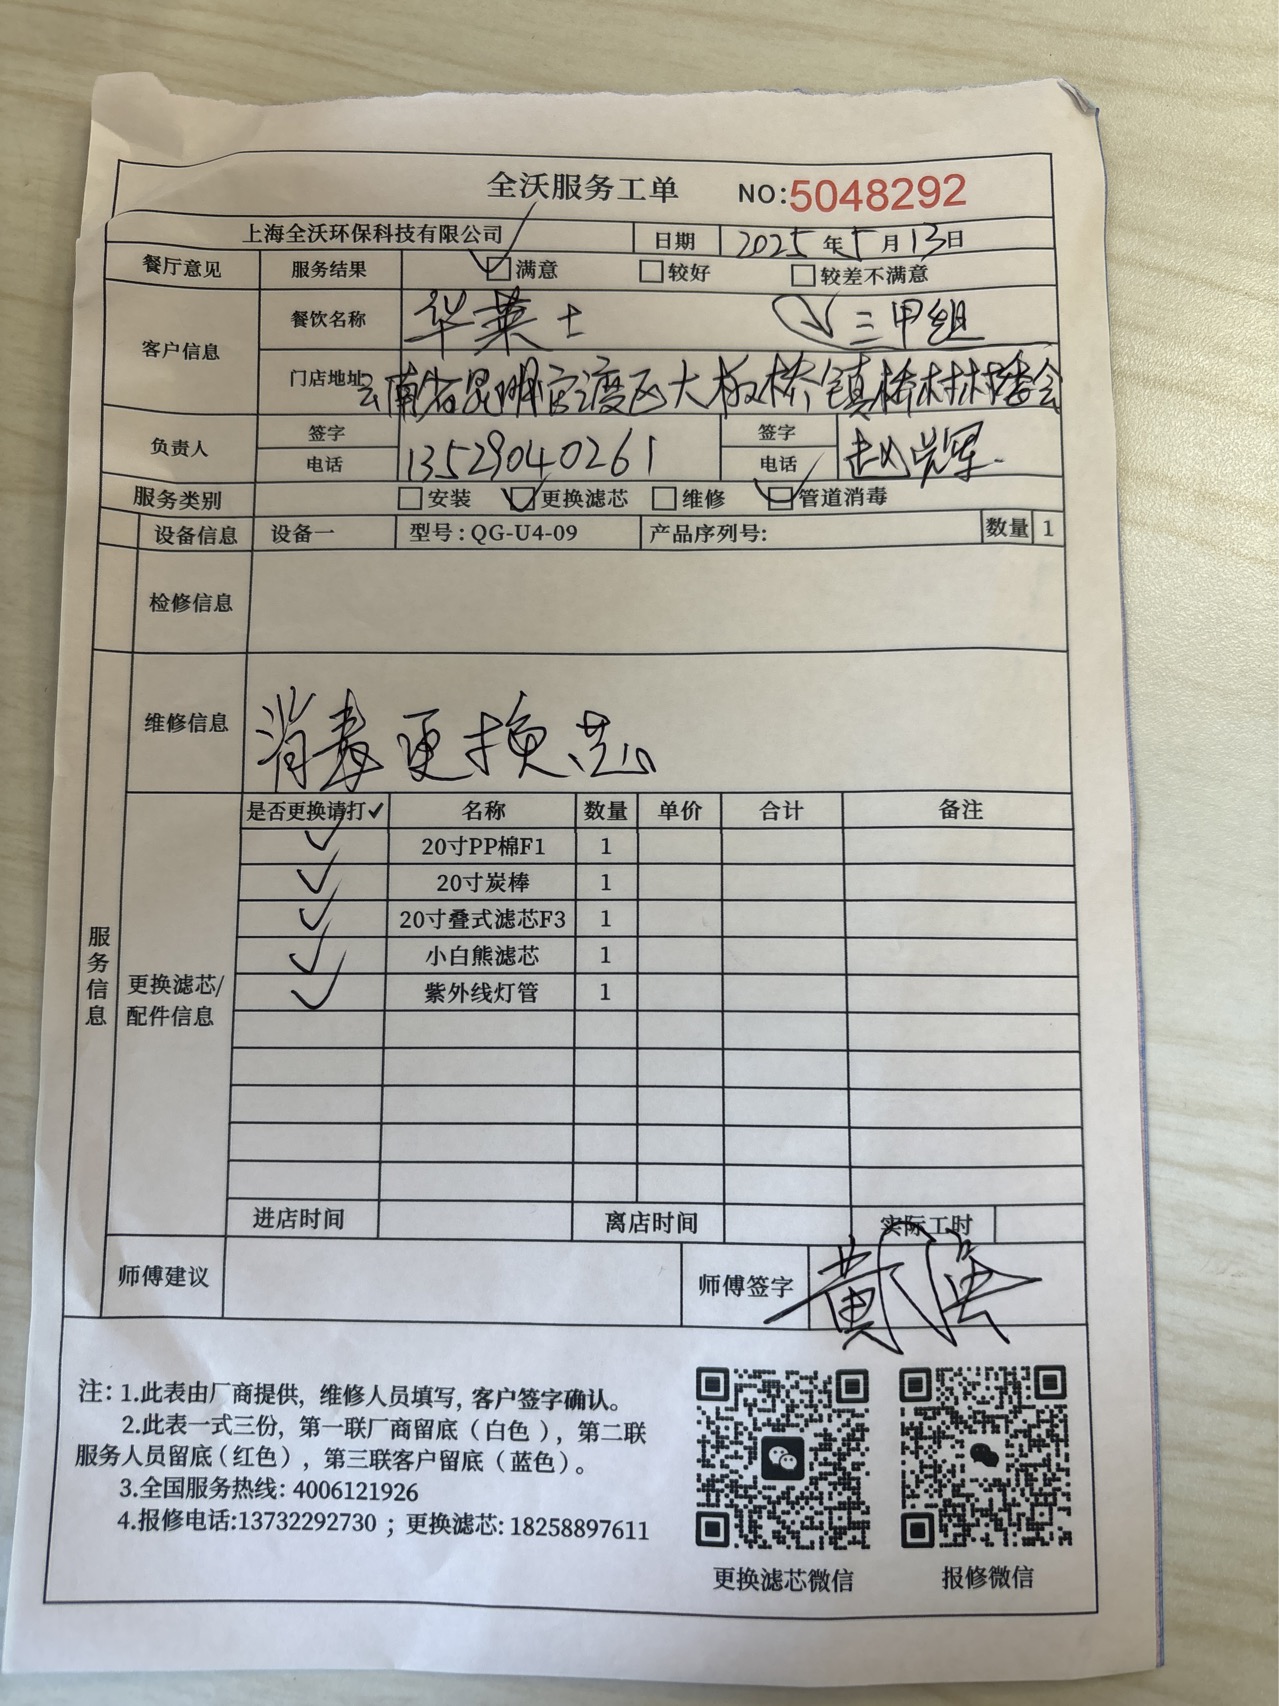 全沃服务工单 NO:5048292
上海全沃环保科技有限公司 日期 2025年5月13日
餐厅意见 服务结果 ☑满意 □较好 □较差不满意
客户信息 餐饮名称 华莱士 三甲组
门店地址 云南省昆明官渡区大板桥镇桥村村委会
负责人 签字 签字
电话 13529040261 电话 赵崇军
服务类别 □安装 ☑更换滤芯 □维修 ☑管道消毒
设备信息 设备一 型号:QG-U4-09 产品序列号: 数量 1
检修信息
维修信息 消毒更换芯
服务信息
更换滤芯/配件信息
是否更换请打✓ 名称 数量 单价 合计 备注
✓ 20寸PP棉F1 1
✓ 20寸炭棒 1
✓ 20寸叠式滤芯F3 1
✓ 小白熊滤芯 1
✓ 紫外线灯管 1
进店时间 离店时间 实际工时
师傅建议 师傅签字 黄
注:1.此表由厂商提供，维修人员填写,客户签字确认。
2.此表一式三份，第一联厂商留底（白色），第二联
服务人员留底（红色），第三联客户留底（蓝色）。
3.全国服务热线:4006121926
4.报修电话:13732292730；更换滤芯:18258897611
更换滤芯微信 报修微信